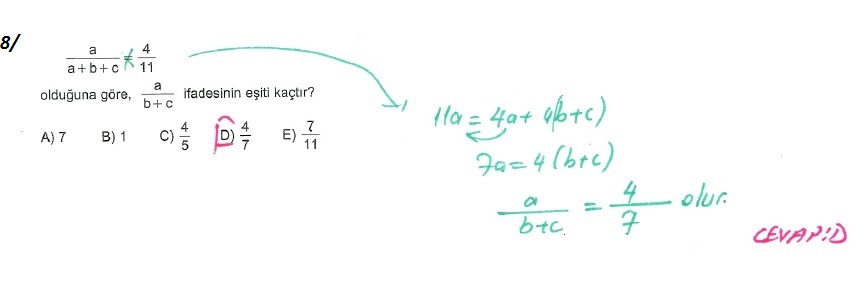 8/
a / (a + b + c) = 4 / 11
olduğuna göre, a / (b + c) ifadesinin eşiti kaçtır?
A) 7 B) 1 C) 4/5 D) 4/7 E) 7/11
11a = 4a + 4(b+c)
7a = 4(b+c)
a / (b+c) = 4 / 7 olur.
CEVAP:D